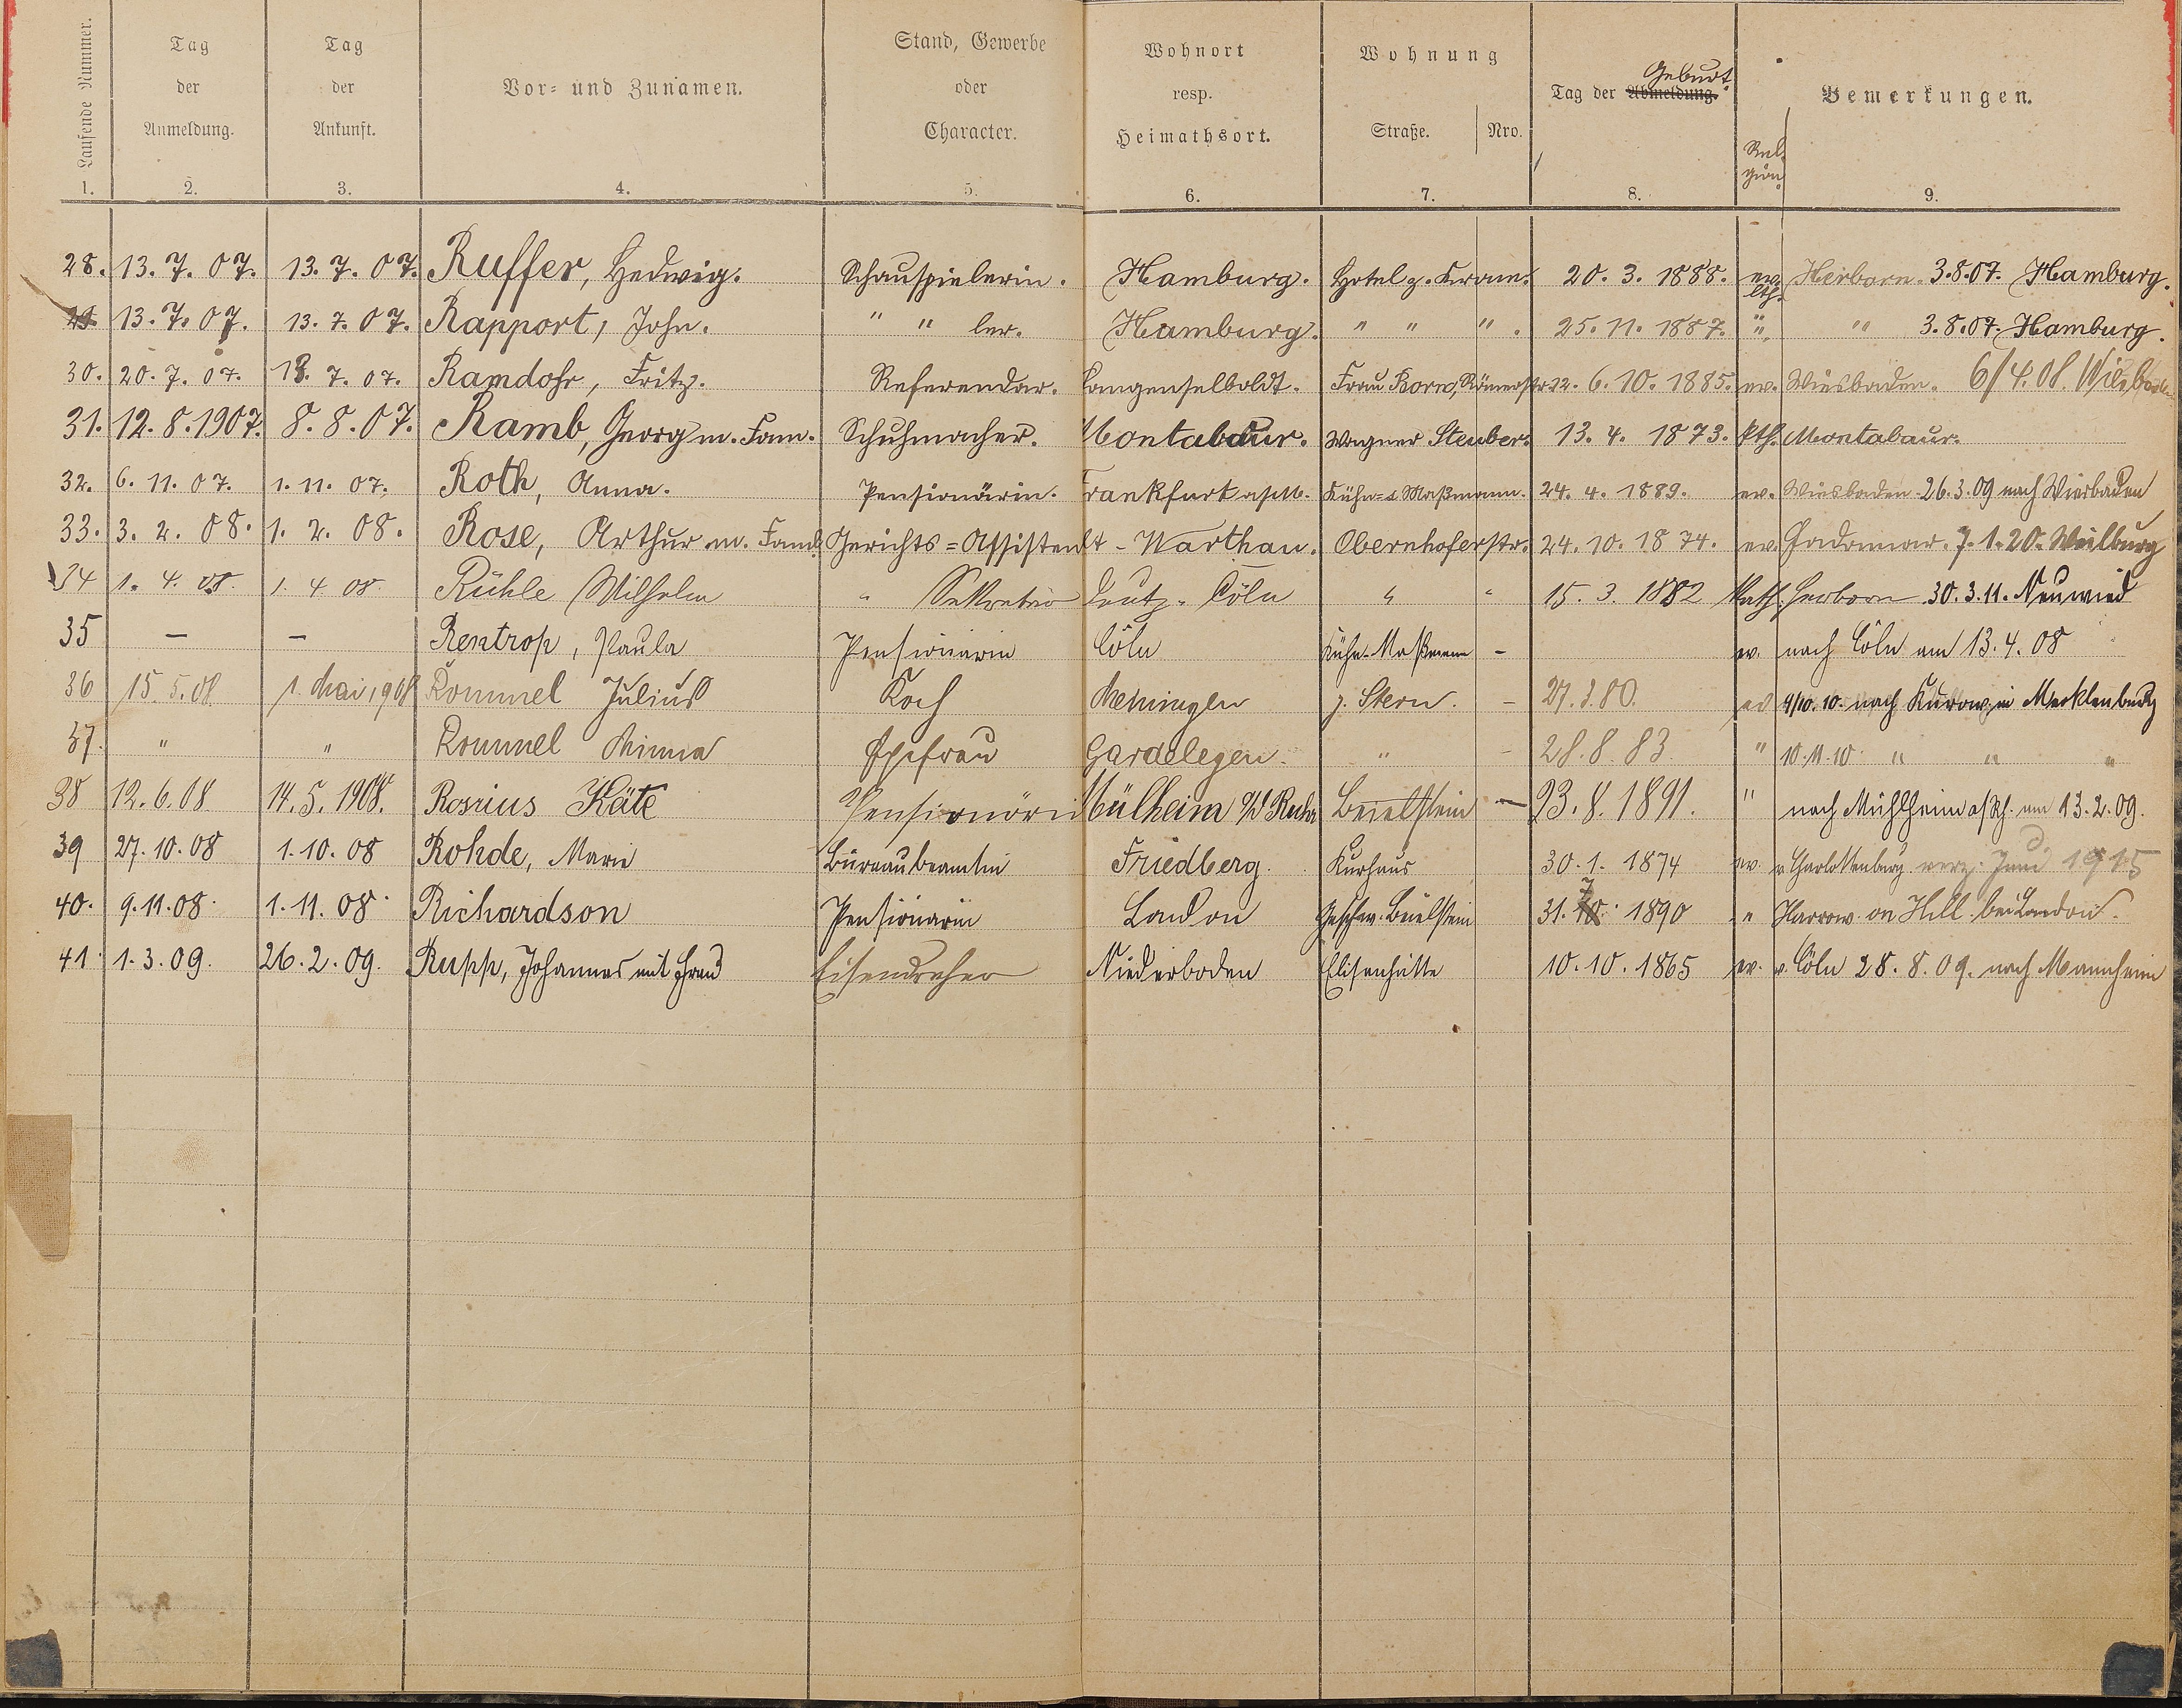 Laufende Nummer. Tag der Anmeldung. Tag der Ankunft. Vor- und Zunamen. Stand, Gewerbe oder Character. Wohnort resp. Heimathsort. Wohnung Straße. Nro. Tag der Abmeldung. Geburt Religion Bemerkungen.
1. 2. 3. 4. 5. 6. 7. 8. 9.
28. 13. 7. 07. 13. 7. 07. Ruffer, Hedwig. Schauspielerin. Hamburg. Hotel z. Krone. 20. 3. 1888. ev. lth. Herborn. 3.8.07. Hamburg.
29. 13. 7. 07. 13. 7. 07. Rapport, John. " " ler. Hamburg. " " ". 25. 11. 1887. " " 3.8.07. Hamburg.
30. 20. 7. 07. 18. 7. 07. Ramdohr, Fritz. Referendar. Langenselboldt. Frau Korn, Römerstr. 22. 6. 10. 1885. ev. Wiesbaden. 6/4. 08. Wiesbaden
31. 12. 8. 1907. 8. 8. 07. Ramb, Georg m. Fam. Schuhmacher. Montabaur. Wagner Steuber. 13. 4. 1873. kth. Montabaur.
32. 6. 11. 07. 1. 11. 07. Roth, Anna. Pensionärin. Frankfurt a/M. Kühn= & Maßmann. 24. 4. 1889. ev. Wiesbaden. 26.3.09 nach Wiesbaden
33. 3. 2. 08. 1. 2. 08. Rose, Arthur m. Fam. Gerichts=Assistent - Warthau. Obernhoferstr. 24. 10. 1874. ev. Hadamar. 7.1.20. Weilburg
34 1. 4. 08. 1. 4. 08. Rühle Wilhelm " Sekretär Deutz-Cöln " " 15. 3. 1882 Kath. Herborn 30.3.11. Neuwied
35 — — Rentrop, Paula Pensionärin Cöln Kühn-Maßmann - ev. nach Cöln am 13.4.08
36 15. 5. 08. 1. Mai 1908 Rommel Julius Koch Meiningen z. Stern. - 27. 3. 80. ev 4/10. 10. nach Kurow in Mecklenburg
37. " " Rommel Minna Ehefrau Gardelegen. " - 28. 8. 83. " 10.11.10 " " "
38 12. 6. 08 14. 5. 1908. Rosrius Käte Pensionärin Mülheim a/d Ruhr Beielstein — 23. 8. 1891. " nach Mühlheim a/Rh. am 13.2.09.
39 27. 10. 08 1. 10. 08 Rohde, Marie Büreaubeamtin Friedberg. Kurhaus 30. 1. 1874 ev. v. Charlottenburg verz. Juni 1915
40. 9. 11. 08. 1. 11. 08. Richardson Pensionärin London Geschw. Beielstein 31. 7. 1890 " Harrow on Hill bei London.
41. 1. 3. 09. 26. 2. 09. Rupp, Johannes mit Frau Eisendreher Niederboden Elisenhütte 10. 10. 1865 ev. v. Cöln 28. 8. 09. nach Mannheim